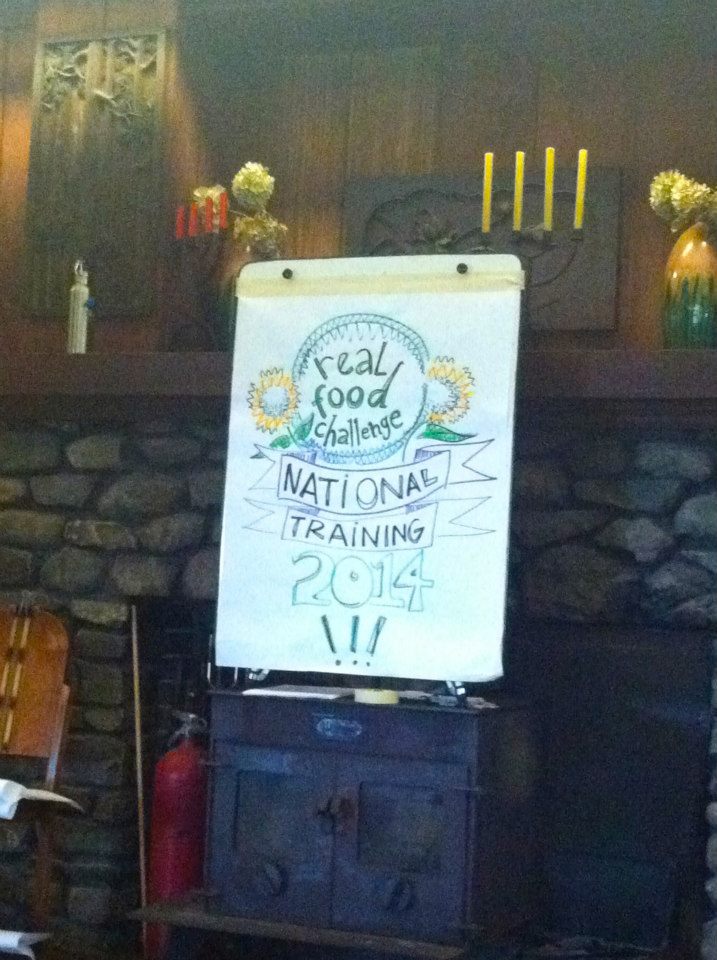 real
food
challenge
NATIONAL
TRAINING
2014
!!!